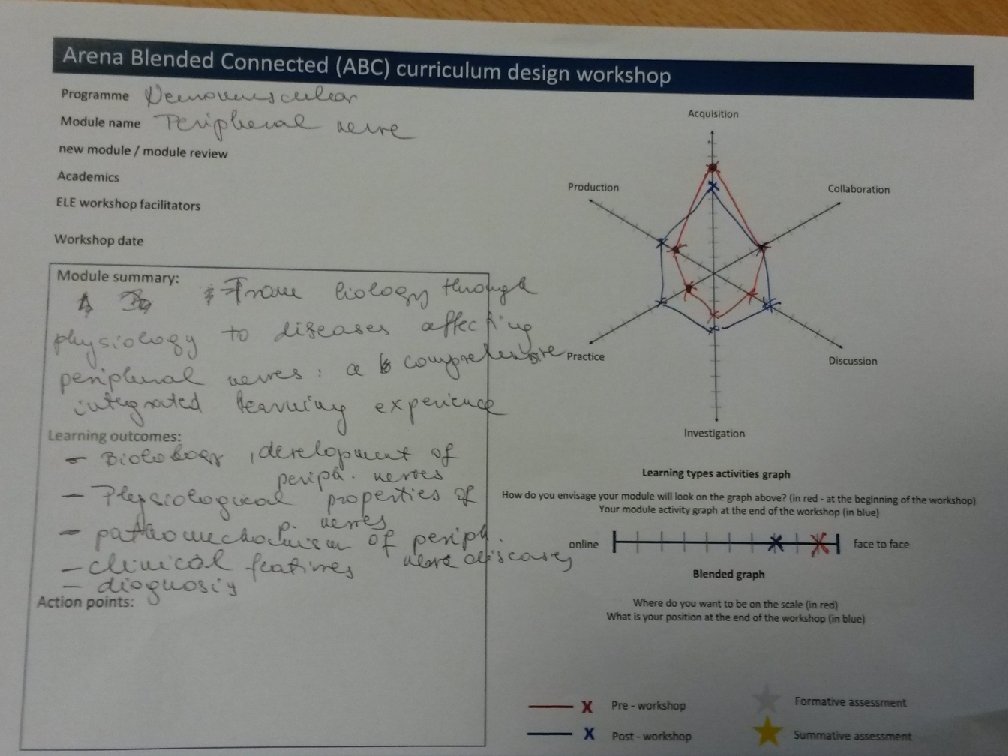 Arena Blended Connected (ABC) curriculum design workshop
Programme Neuromuscular
Module name Peripheral nerve
new module / module review
Academics
ELE workshop facilitators
Workshop date
Module summary:
From biology through
physiology to diseases affecting
peripheral nerves: a comprehensive
integrated learning experience
Learning outcomes:
- Biology, development of
periph. nerves
- Physiological properties of
p. nerves
- pathomechanism of periph.
nerve disease
- clinical features
- diagnosis
Action points:
Acquisition
Production
Collaboration
Practice
Discussion
Investigation
Learning types activities graph
How do you envisage your module will look on the graph above? (in red - at the beginning of the workshop)
Your module activity graph at the end of the workshop (in blue)
online
face to face
Blended graph
Where do you want to be on the scale (in red)
What is your position at the end of the workshop (in blue)
X Pre - workshop
X Post - workshop
Formative assessment
Summative assessment